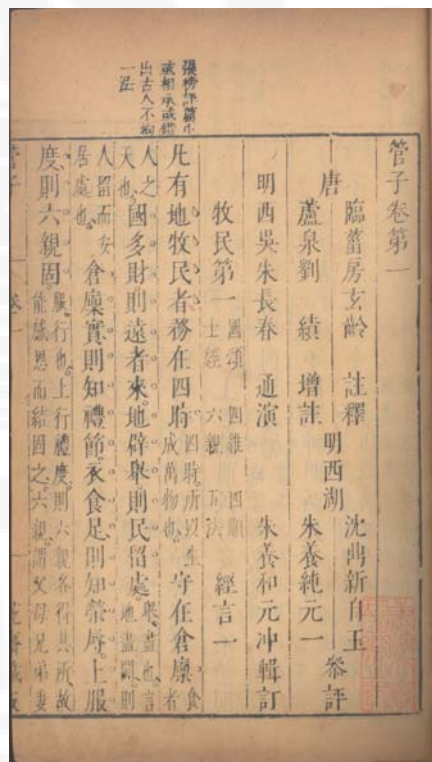 張榜評篇小
或相承或錯
出古人不拘
一法
管子卷第一
唐
臨菑房玄齡 註釋
蘆泉劉 績 增註
明西湖
沈鼎新自玉
朱養純元一
參評
明西吳朱長春 通演 朱養和元冲輯訂
牧民第一 國頌 四維 四順 士經 六親 五法 經言一
凡有地牧民者務在四時。四時所以生成萬物也。守在倉廩。食者
人之天也。國多財則遠者來。地辟舉則民留處。舉盡也。言地盡闢則
人留而安居處也。倉廩實則知禮節。衣食足則知榮辱。上服
度則六親固。服行也。上行禮度則六親各得其所故能感恩而結固之。六親謂父母兄弟妻
管子 卷一 花齋藏板